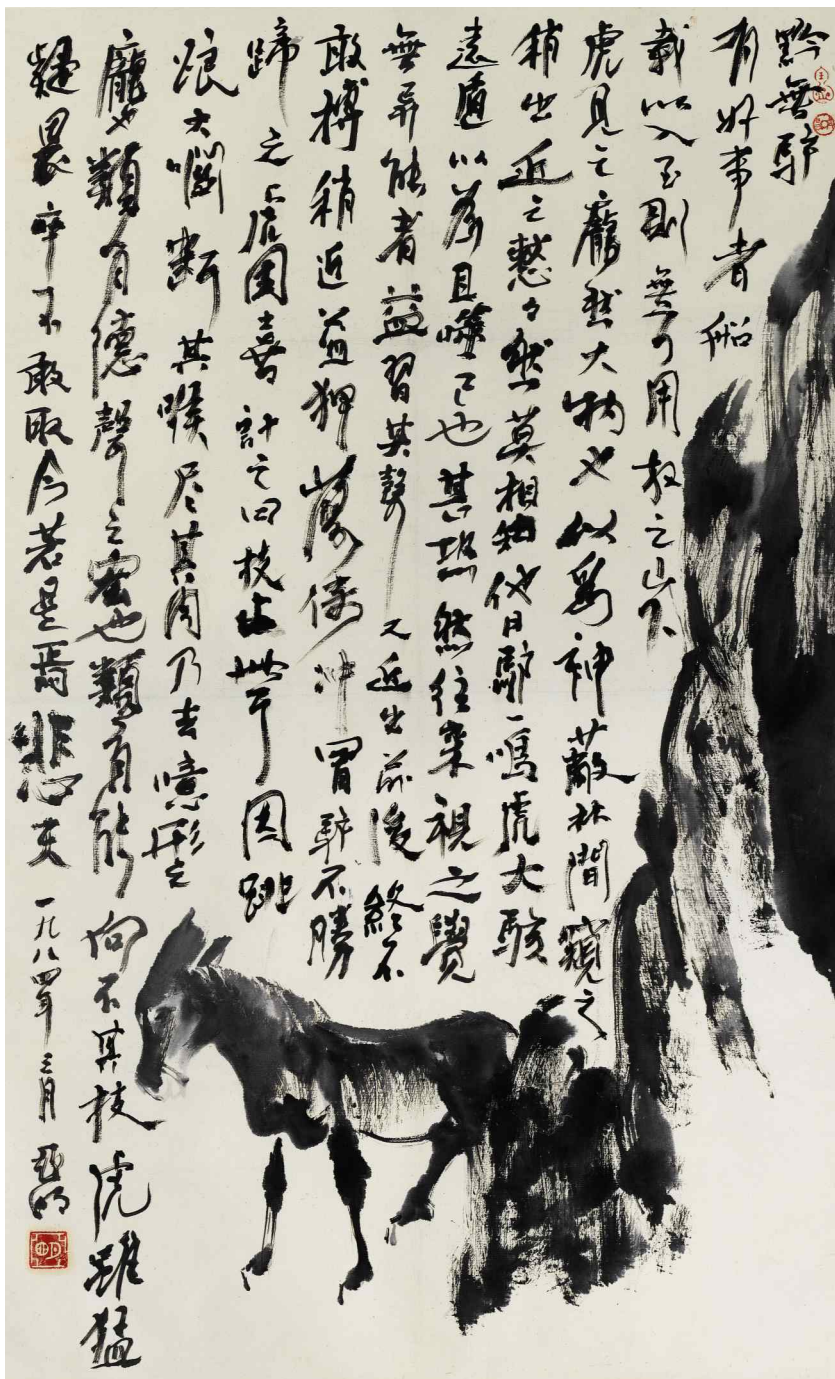 黔無驴
有好事者船
載以入至則無可用放之山下
虎見之龐然大物也以為神蔽林間窺之
稍出近之憖々然莫相知他日驴一鳴虎大駭
遠遁以為且噬己也甚恐然往來視之覺
無异能者益習其聲又近出前後終不
敢搏稍近益狎蕩倚沖冒驴不勝
蹄之虎因喜計之曰技止此耳因跳
踉大㘎斷其喉尽其肉乃去噫形之
龐也類有德聲之宏也類有能向不其技虎雖猛
疑畏卒不敢取今若是焉悲夫 一九八四年三月 亞明